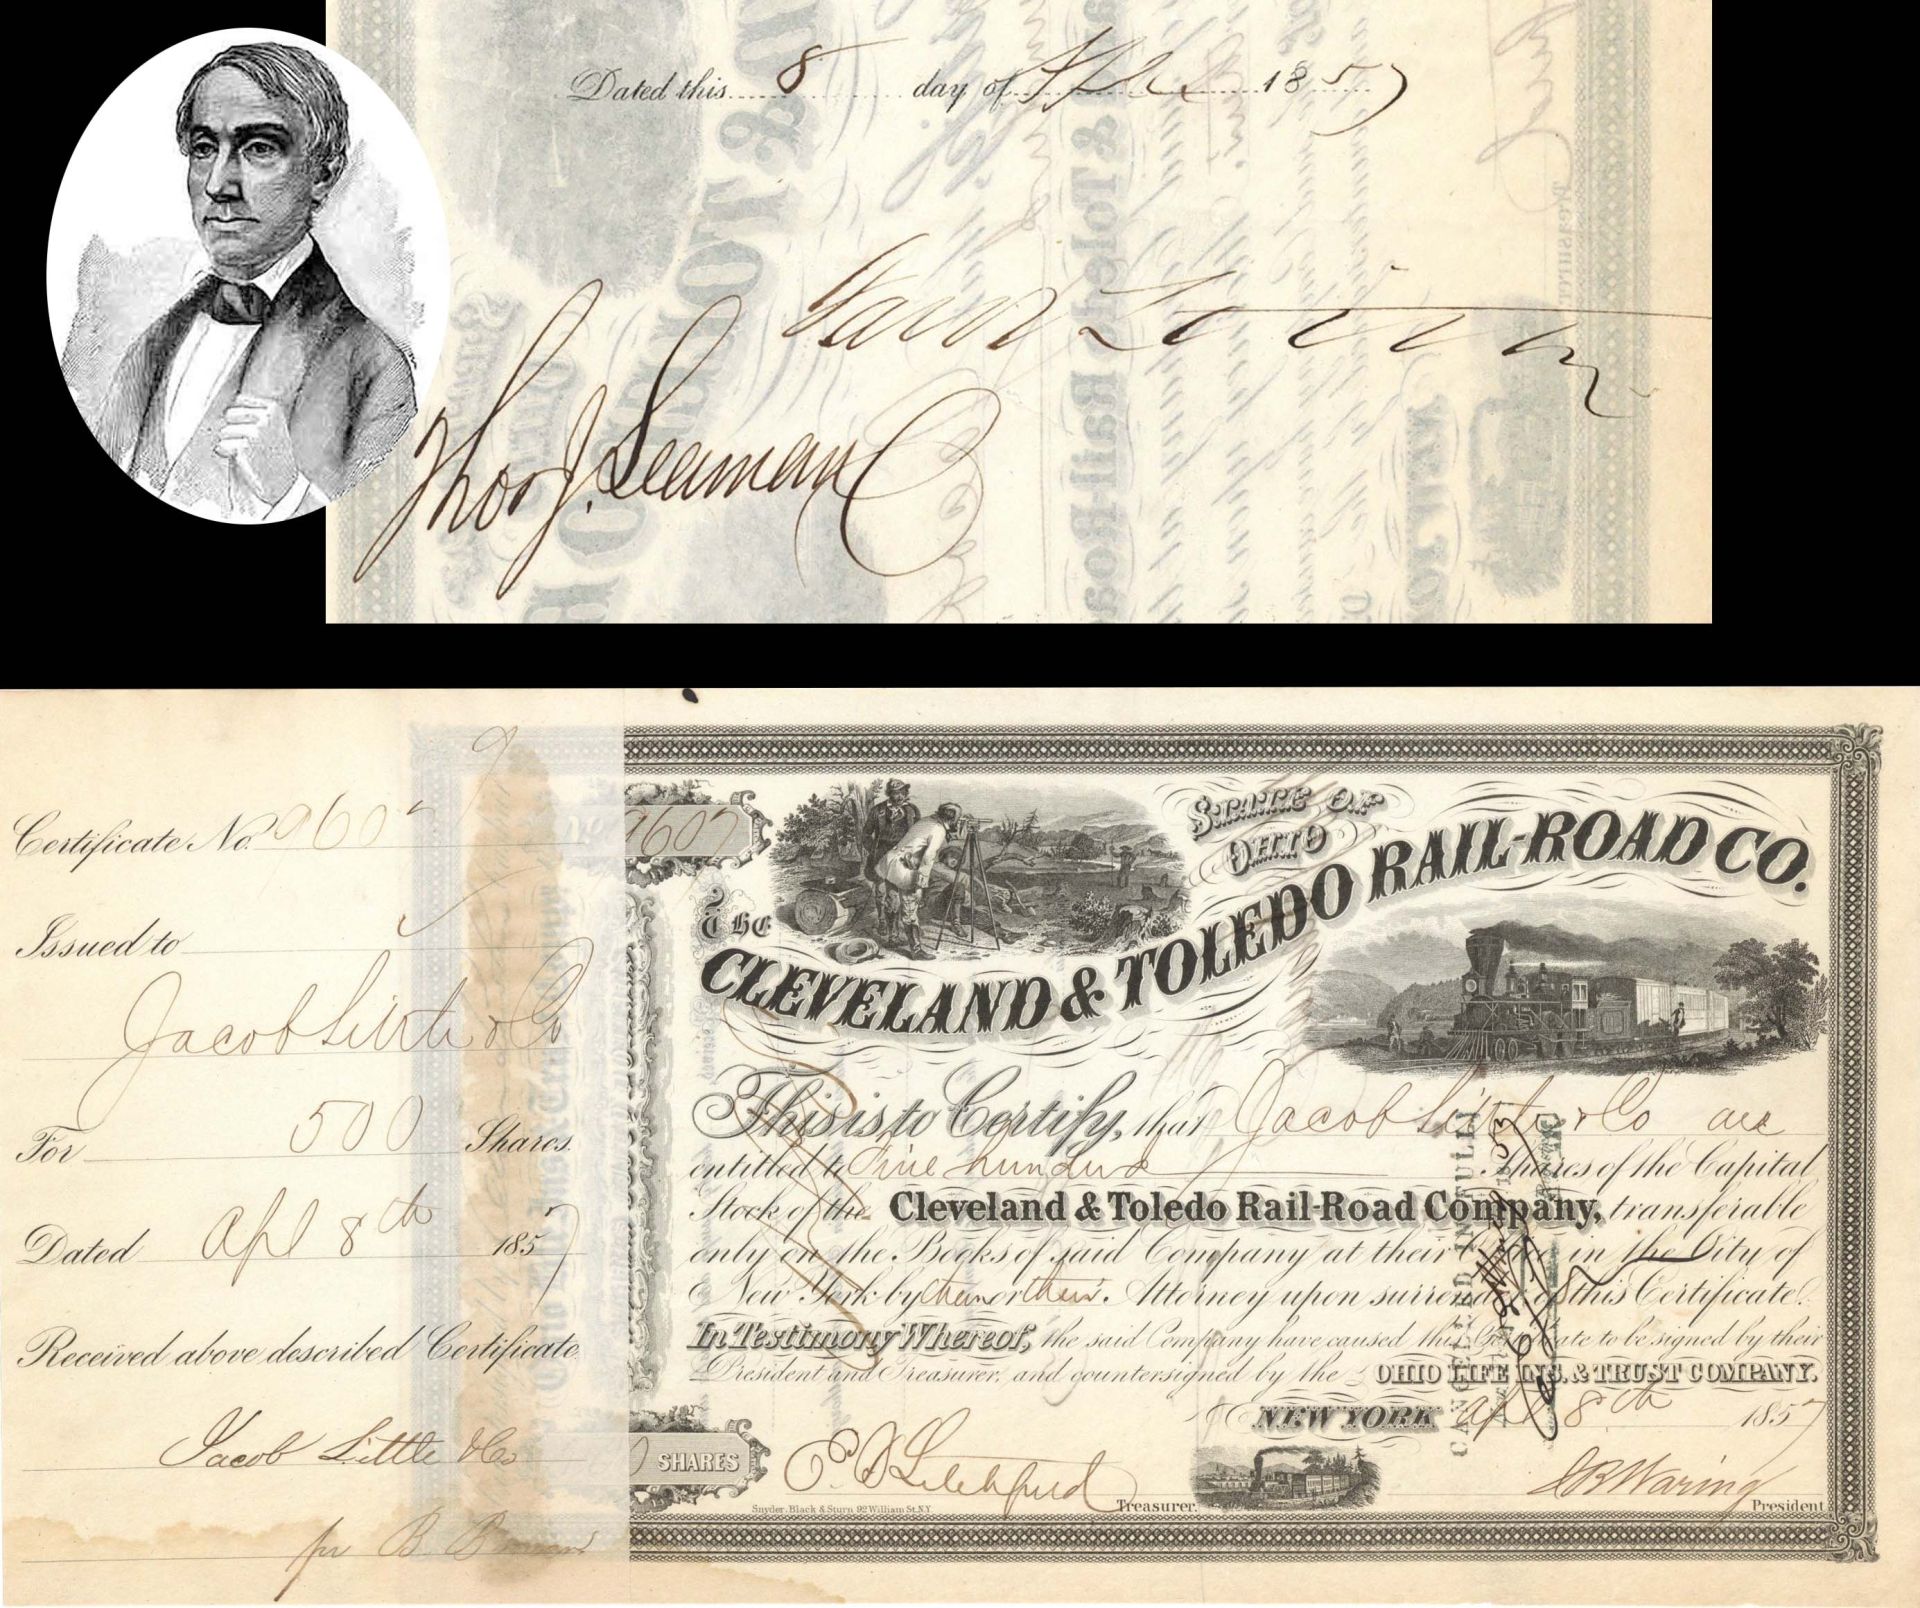 Dated this 8 day of April 1857
Jacob Little
Thos J. Seaman
Certificate No. 9607
Issued to
Jacob Little & Co
For 500 Shares
Dated Apl 8th 1857
Received above described Certificate
Jacob Little & Co
pr B.
9607
STATE OF
OHIO
THE
CLEVELAND & TOLEDO RAIL-ROAD CO.
This is to Certify, that Jacob Little & Co are
entitled to Five hundred Shares of the Capital
Stock of the Cleveland & Toledo Rail-Road Company, transferable
only on the Books of said Company at their Office in the City of
New York by them or their Attorney upon surrender of this Certificate.
In Testimony Whereof, the said Company have caused this Certificate to be signed by their
President and Treasurer, and countersigned by the OHIO LIFE INS. & TRUST COMPANY.
NEW YORK Apl 8th 1857
SHARES
Treasurer.
Snyder, Black & Sturn 92 William St. N.Y.
J B Waring
President
CANCELLED IN FULL